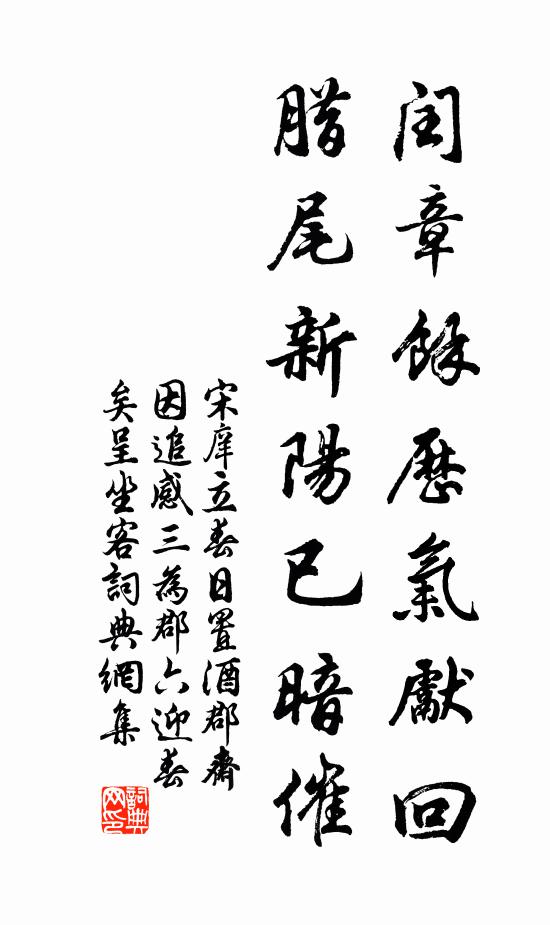 閏章餘歷氣獻回
腊尾新陽已暗催
宋庠立春日置酒郡齋
因追感三為郡六迎春
矣呈坐客詞典網集
詞典网印